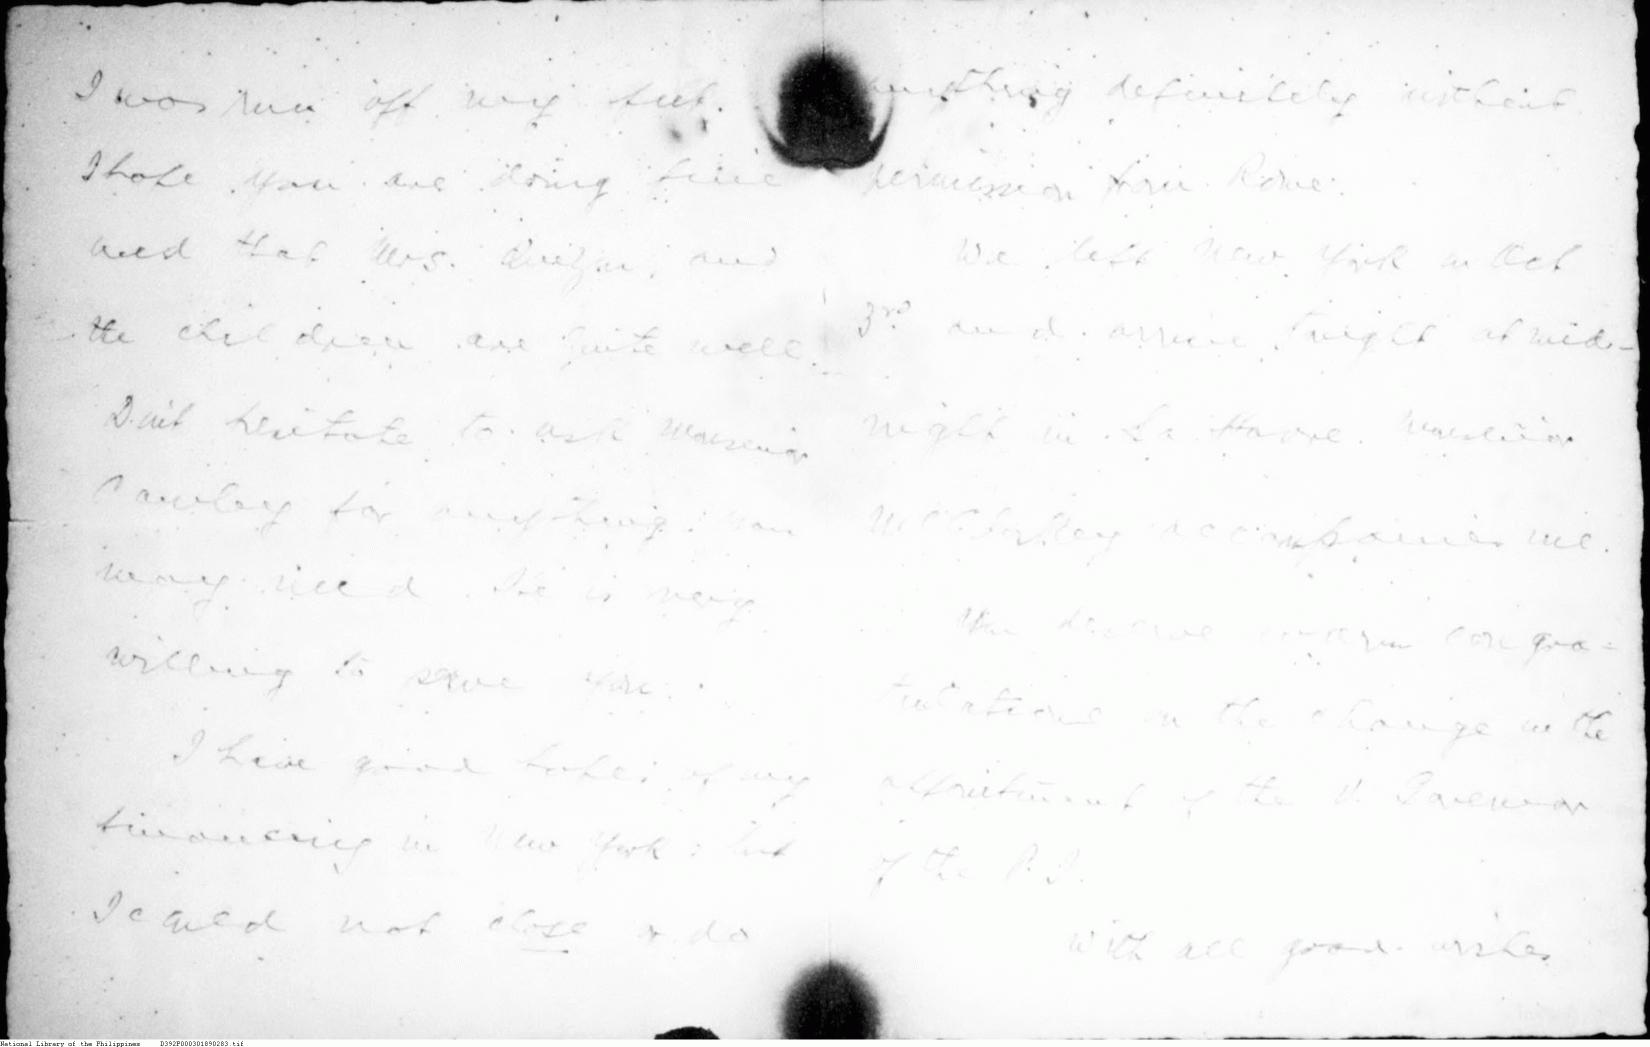 I was run off my feet.
I hope you are doing fine
and that Mrs. Quezon, and
the children are quite well.
Don't hesitate to ask Monsignor
Cawley for anything you
may need. He is very
willing to serve you.
I have good hopes of my
financing in New York: but
I could not close or do
anything definitely without
permission from Rome.
We left New York on Oct
3rd and arrive tonight at mid-
night in La Havre. Monsignor
accompanies me.
You deserve warm congra-
tulations on the change in the
appointment of the V. Governor
of the P.I.
With all good wishes
National Library of the Philippines D392P000301890283.tif